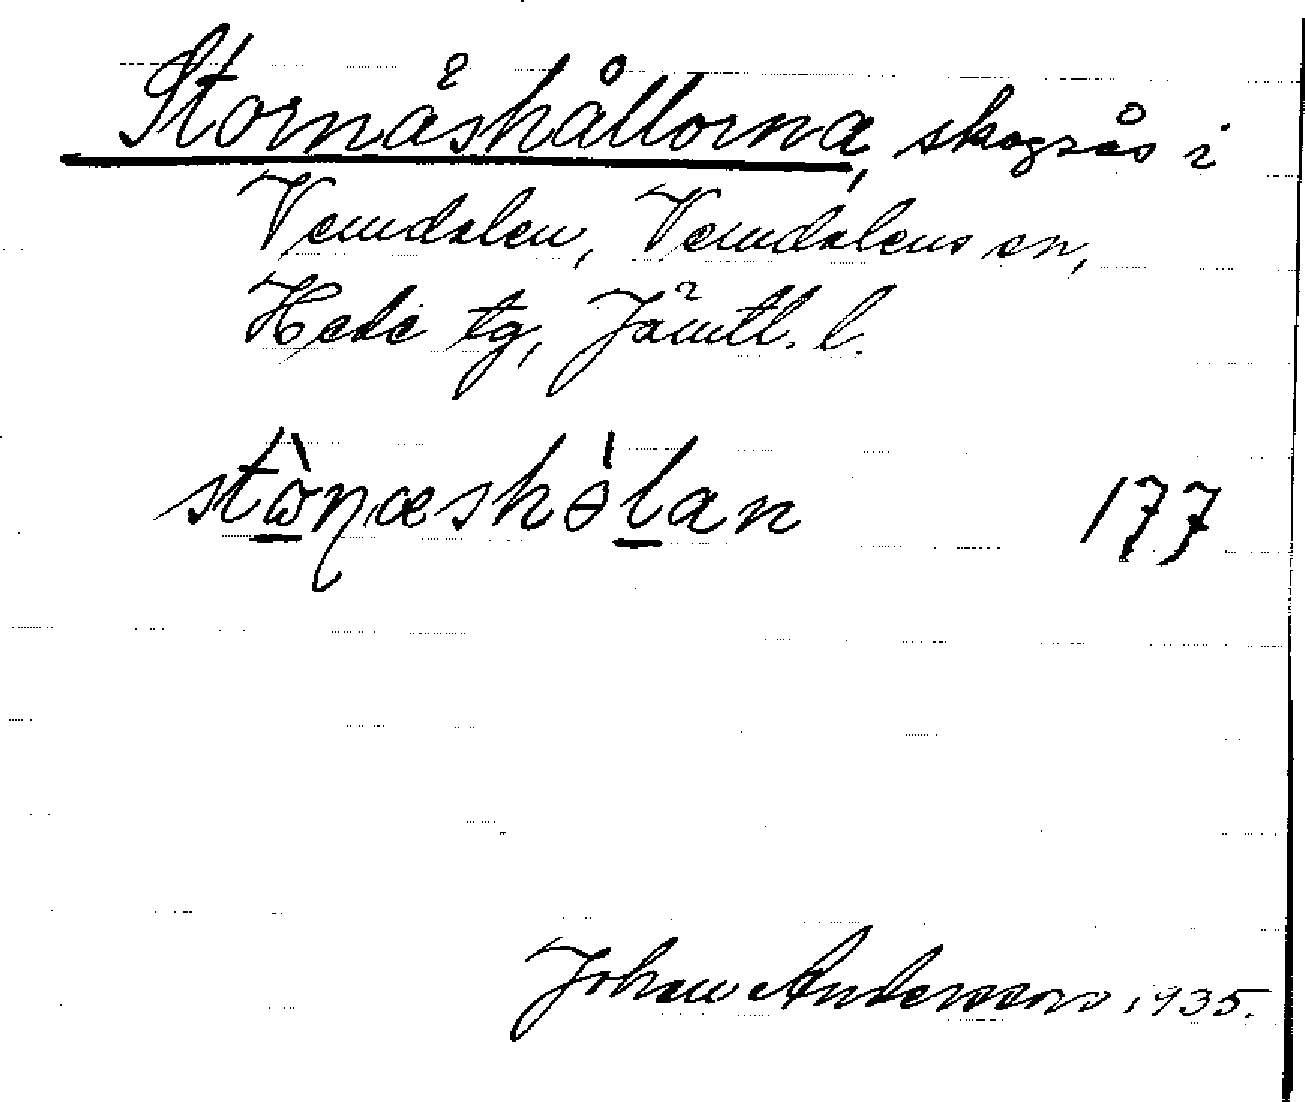 Stornåshållorna, skogsås i
Vemdalen, Vemdalens sn,
Hede tg, Jämtl. l.
stɷ̀ɳæshə̍lan 177
Johan Andersson 1935.